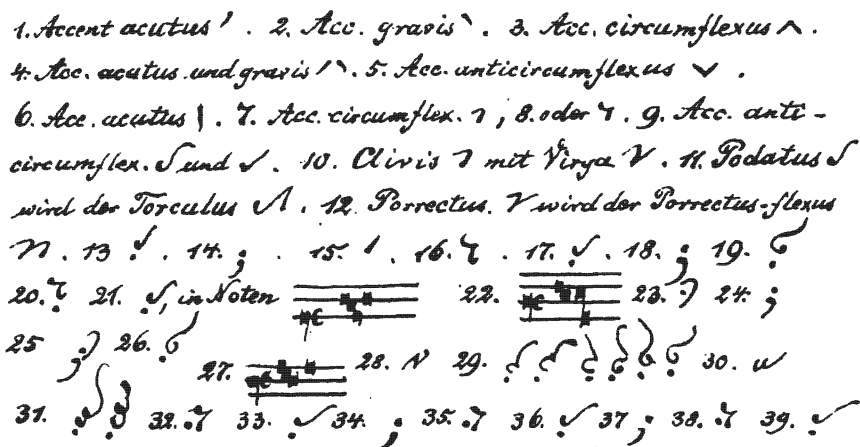 1. Accent acutus ′ . 2. Acc. gravis ` . 3. Acc. circumflexus ^ .
4. Acc. acutus und gravis ′ ` . 5. Acc. anticircumflexus ˅ .
6. Acc. acutus | . 7. Acc. circumflex. , 8. oder . 9. Acc. anti-
circumflex. und . 10. Clivis mit Virga . 11. Podatus
wird der Torculus . 12. Porrectus. wird der Porrectus-flexus
. 13 . 14. . 15. . 16. . 17. . 18. ; 19.
20. 21. , in Noten 22. 23. 24. ;
25 26.
27. 28. 29. 30.
31. 32. 33. 34. ; 35. 36. 37 ; 38. 39.